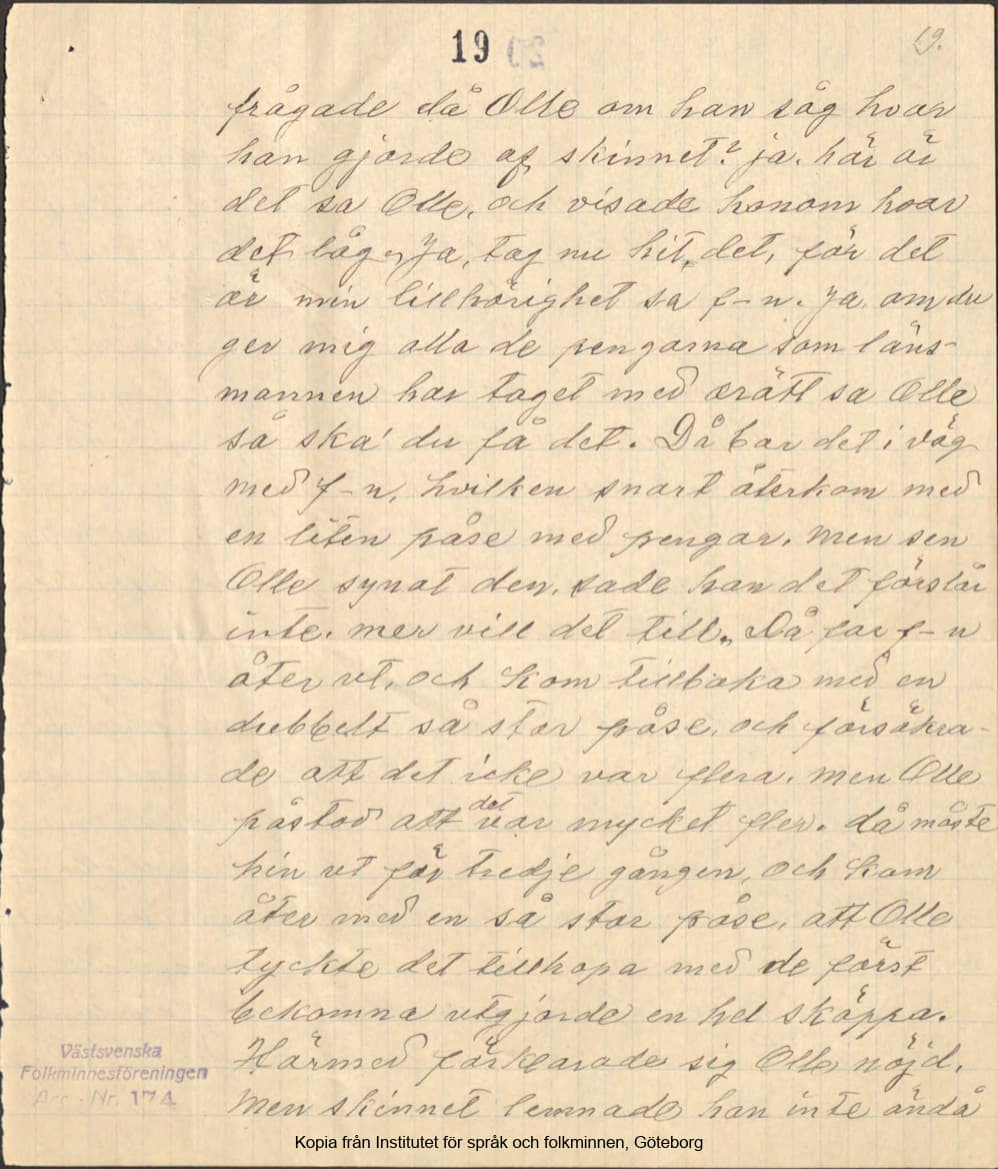 19 20 19.
frågade då Olle om han såg hvar
han gjorde af skinnet? ja. här är
det sa Olle, och visade honom hvar
det låg. Ja, tag nu hit det, för det
är min tillhörighet sa f-n. Ja, om du
ger mig alla de pengarna som läns-
mannen har taget med orätt sa Olle
så ska' du få det. Då bar det i väg
med f-n, hvilken snart återkom med
en liten påse med pengar, men sen
Olle synat den, sade han det förslår
inte. mer vill det till. Då for f-n
åter ut, och kom tillbaka med en
dubbelt så stor påse, och försäkra-
de att det icke var flera, men Olle
påstod att det var mycket fler. då måste
hin ut för tredje gången, och kom
åter med en så stor påse, att Olle
tyckte det tillhopa med de först
bekomna utgjorde en hel skäppa.
Härmed förklarade sig Olle nöjd,
men skinnet lemnade han inte ändå
Västsvenska
Folkminnesföreningen
Acc. Nr. 174
Kopia från Institutet för språk och folkminnen, Göteborg